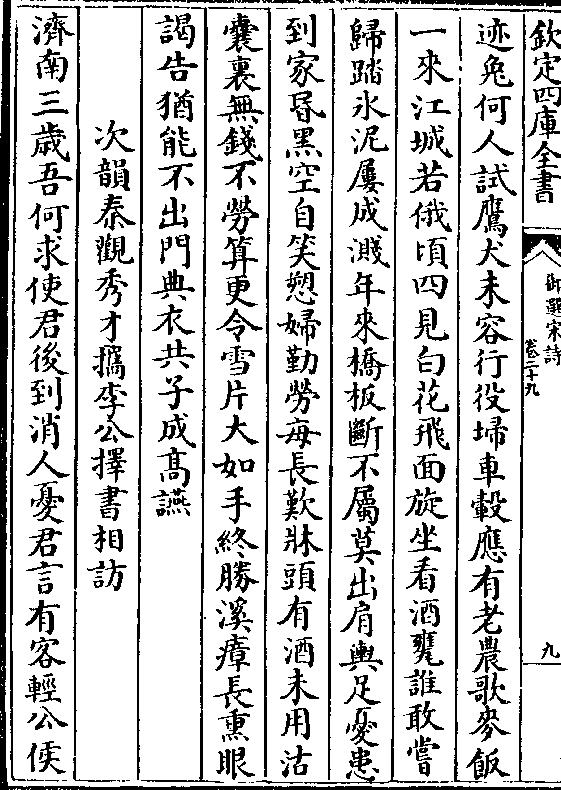 欽定四庫全書
御選宋詩
卷二十九
九
迹兔何人試鷹犬未容行役埽車轂應有老農歌麥飯
一來江城若俄頃四見白花飛面旋坐看酒甕誰敢嘗
歸踏冰泥屢成濺年來橋板斷不屬莫出肩輿足憂患
到家昏黑空自笑愬婦勤勞每長歎牀頭有酒未用沽
囊裏無錢不勞算更令雪片大如手終勝溪瘴長熏眼
謁告猶能不出門典衣共子成髙讌
次韻秦觀秀才攜李公擇書相訪
濟南三歳吾何求使君後到消人憂君言有客輕公侯